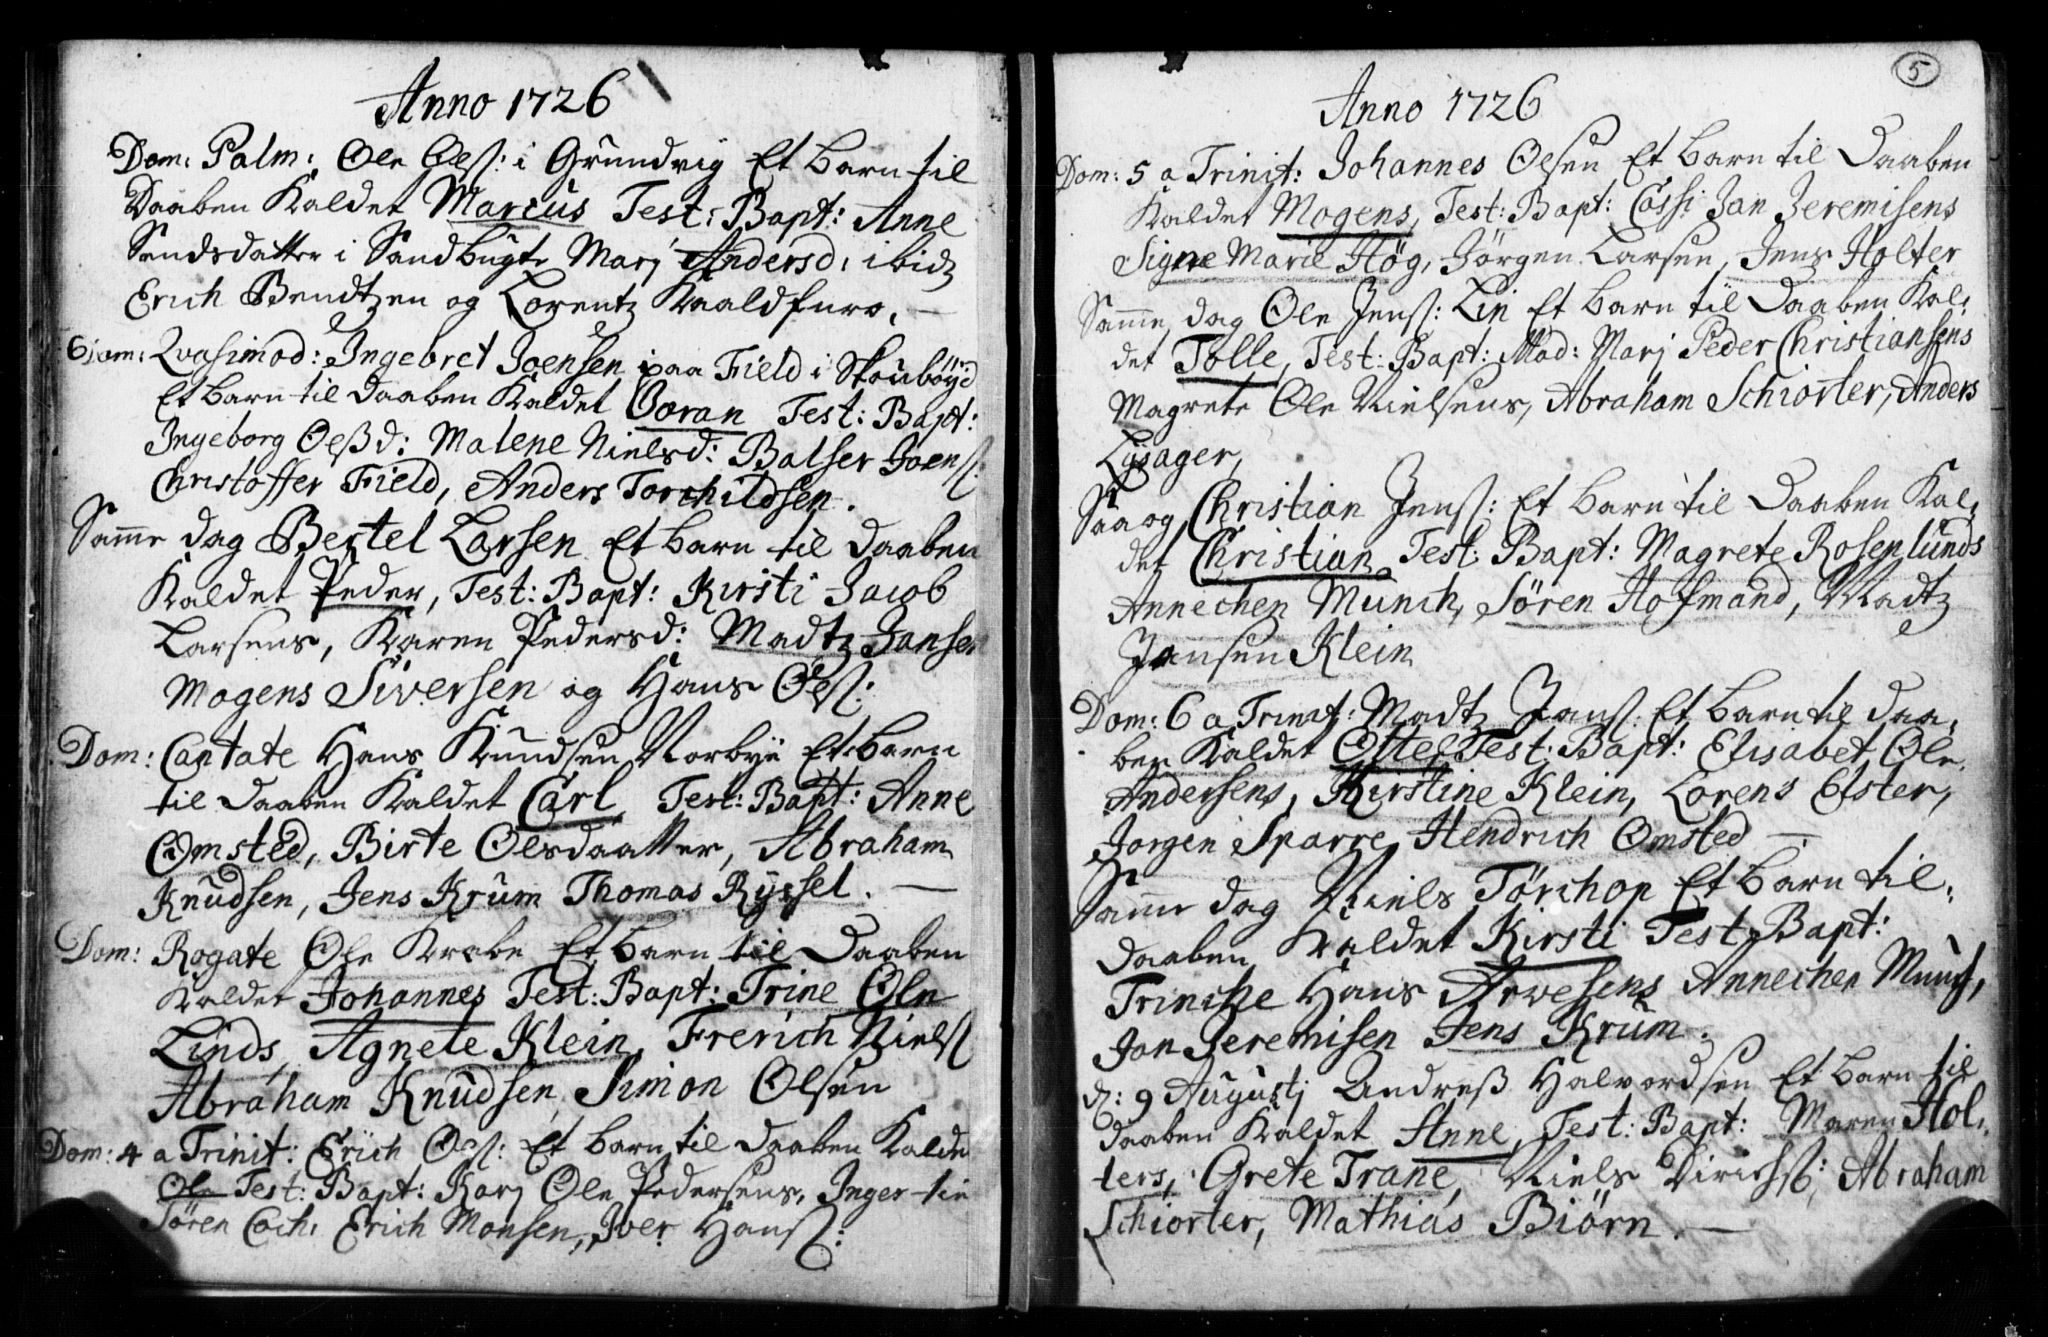 Anno 1726
Dom: Palm: Ole Olß: i Grundvig Et barn til
Daaben Kaldet Marcus Test: Bapt: Anne
Sendsdatter i Sandbugte Marj Andersd: ibidz
Erich Bendtzen og Lorentz Kaaldfuro.
Dom: Qvasimod: Ingebret Joensen paa Field i Skoubøyd
Et barn til Daaben Kaldet Goran Test: Bapt:
Ingeborg Olßd: Malene Nielsd: Balser Joenß:
Christoffer Field, Anders Torchildsen.
Samme dag Bertel Larsen Et barn til Daaben
Kaldet Peder, Test: Bapt: Kirsti Jacob
Larsens, Karen Pedersd: Madtz Janse
Mogens Siversen og Hans Olß:
Dom: Cantate Hans Knudsen Norbye Et barn
til Daaben Kaldet Carl Test: Bapt: Anne
Omsted, Birte Olsdaatter, Abraham
Knudsen, Jens Krum Thomas Ryssel.
Dom: Rogate Ole Krabe Et barn til Daaben
Kaldet Johannes Test: Bapt: Trine Ole
Linds, Agnete Klein, Frerich Nielß
Abraham Knudsen, Simon Olsen
Dom: 4 a Trinit: Erich Olß: Et barn til Daaben Kaldet
Ole Test: Bapt: Karj Ole Pedersens, Inger
Søren Coch, Erich Monsen, Iver Hanß:
5
Anno 1726
Dom: 5 a Trinit: Johannes Olsen Et barn til Daaben
Kaldet Mogens, Test: Bapt: Cassi Jan Jeremisens
Signe Marie Høg, Jørgen Larsen, Jens Holter
Samme dag Ole Jenß: Lie Et barn til Daaben Kal:
det Tolle, Test: Bapt: Mad: Marj Peder Christiansens
Magrete Ole Nielsens, Abraham Schiorter, Anders
Lysager,
Saaog Christian Jenß: Et barn til Daaben Kal:
det Christian, Test: Bapt: Magrete Rosenlunds
Annechen Munch, Søren Hofmand, Madtz
Jansen Klein
Dom: 6 a Trinit: Madtz Janß: Et barn til Daa:
ben Kaldet Ottel Test: Bapt: Elisabet Ole
Andersens, Kirstine Klein, Lorens Elster,
Jorgen Sparre, Hendrich Omsted
Samme dag Niels Tørchop Et barn til
Daaben Kaldet Kirsti Test: Bapt:
Trinche Hans Arvesens Annechen Munch,
Jan Jeremisen Jens Krum.
d: 9 Augustj Andreß Halvordsen Et barn til
Daaben Kaldet Anne, Test: Bapt: Maren Hol:
ters, Grete Trane, Niels Dirichß: Abraham
Schiorter, Mathias Biørn.